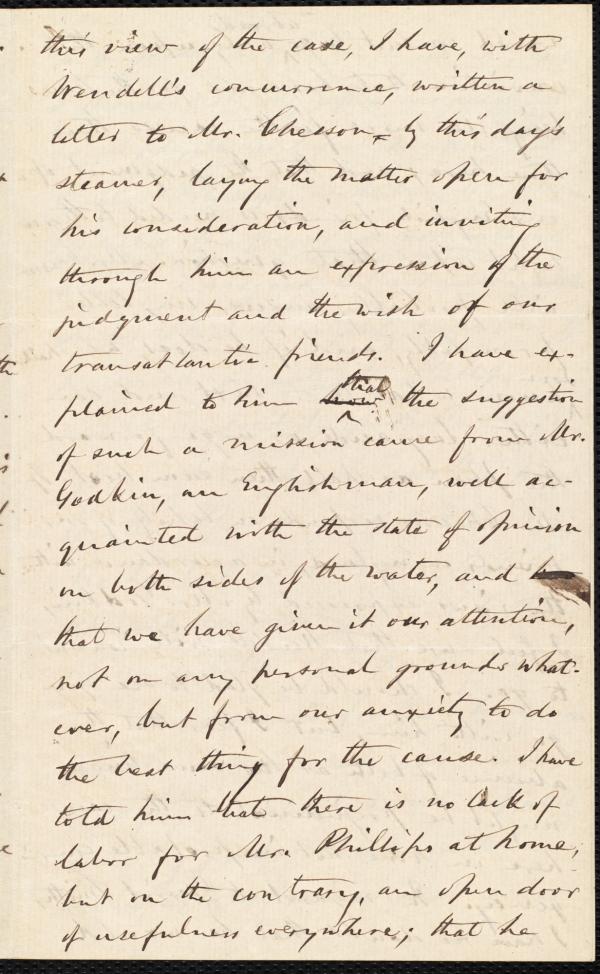 this view of the case, I have, with
Wendell's concurrence, written a
letter to Mr. Chesson, by this day's
steamer, laying the matter open for
his consideration, and inviting
through him an expression of the
judgment and the wish of our
transatlantic friends. I have ex-
plained to him that the suggestion
of such a mission came from Mr.
Godkin, an Englishman, well ac-
quainted with the state of opinion
on both sides of the water, and
that we have given it our attention,
not on any personal grounds what-
ever, but from our anxiety to do
the best thing for the cause. I have
told him that there is no lack of
labor for Mr. Phillips at home,
but on the contrary, an open door
of usefulness everywhere; that he